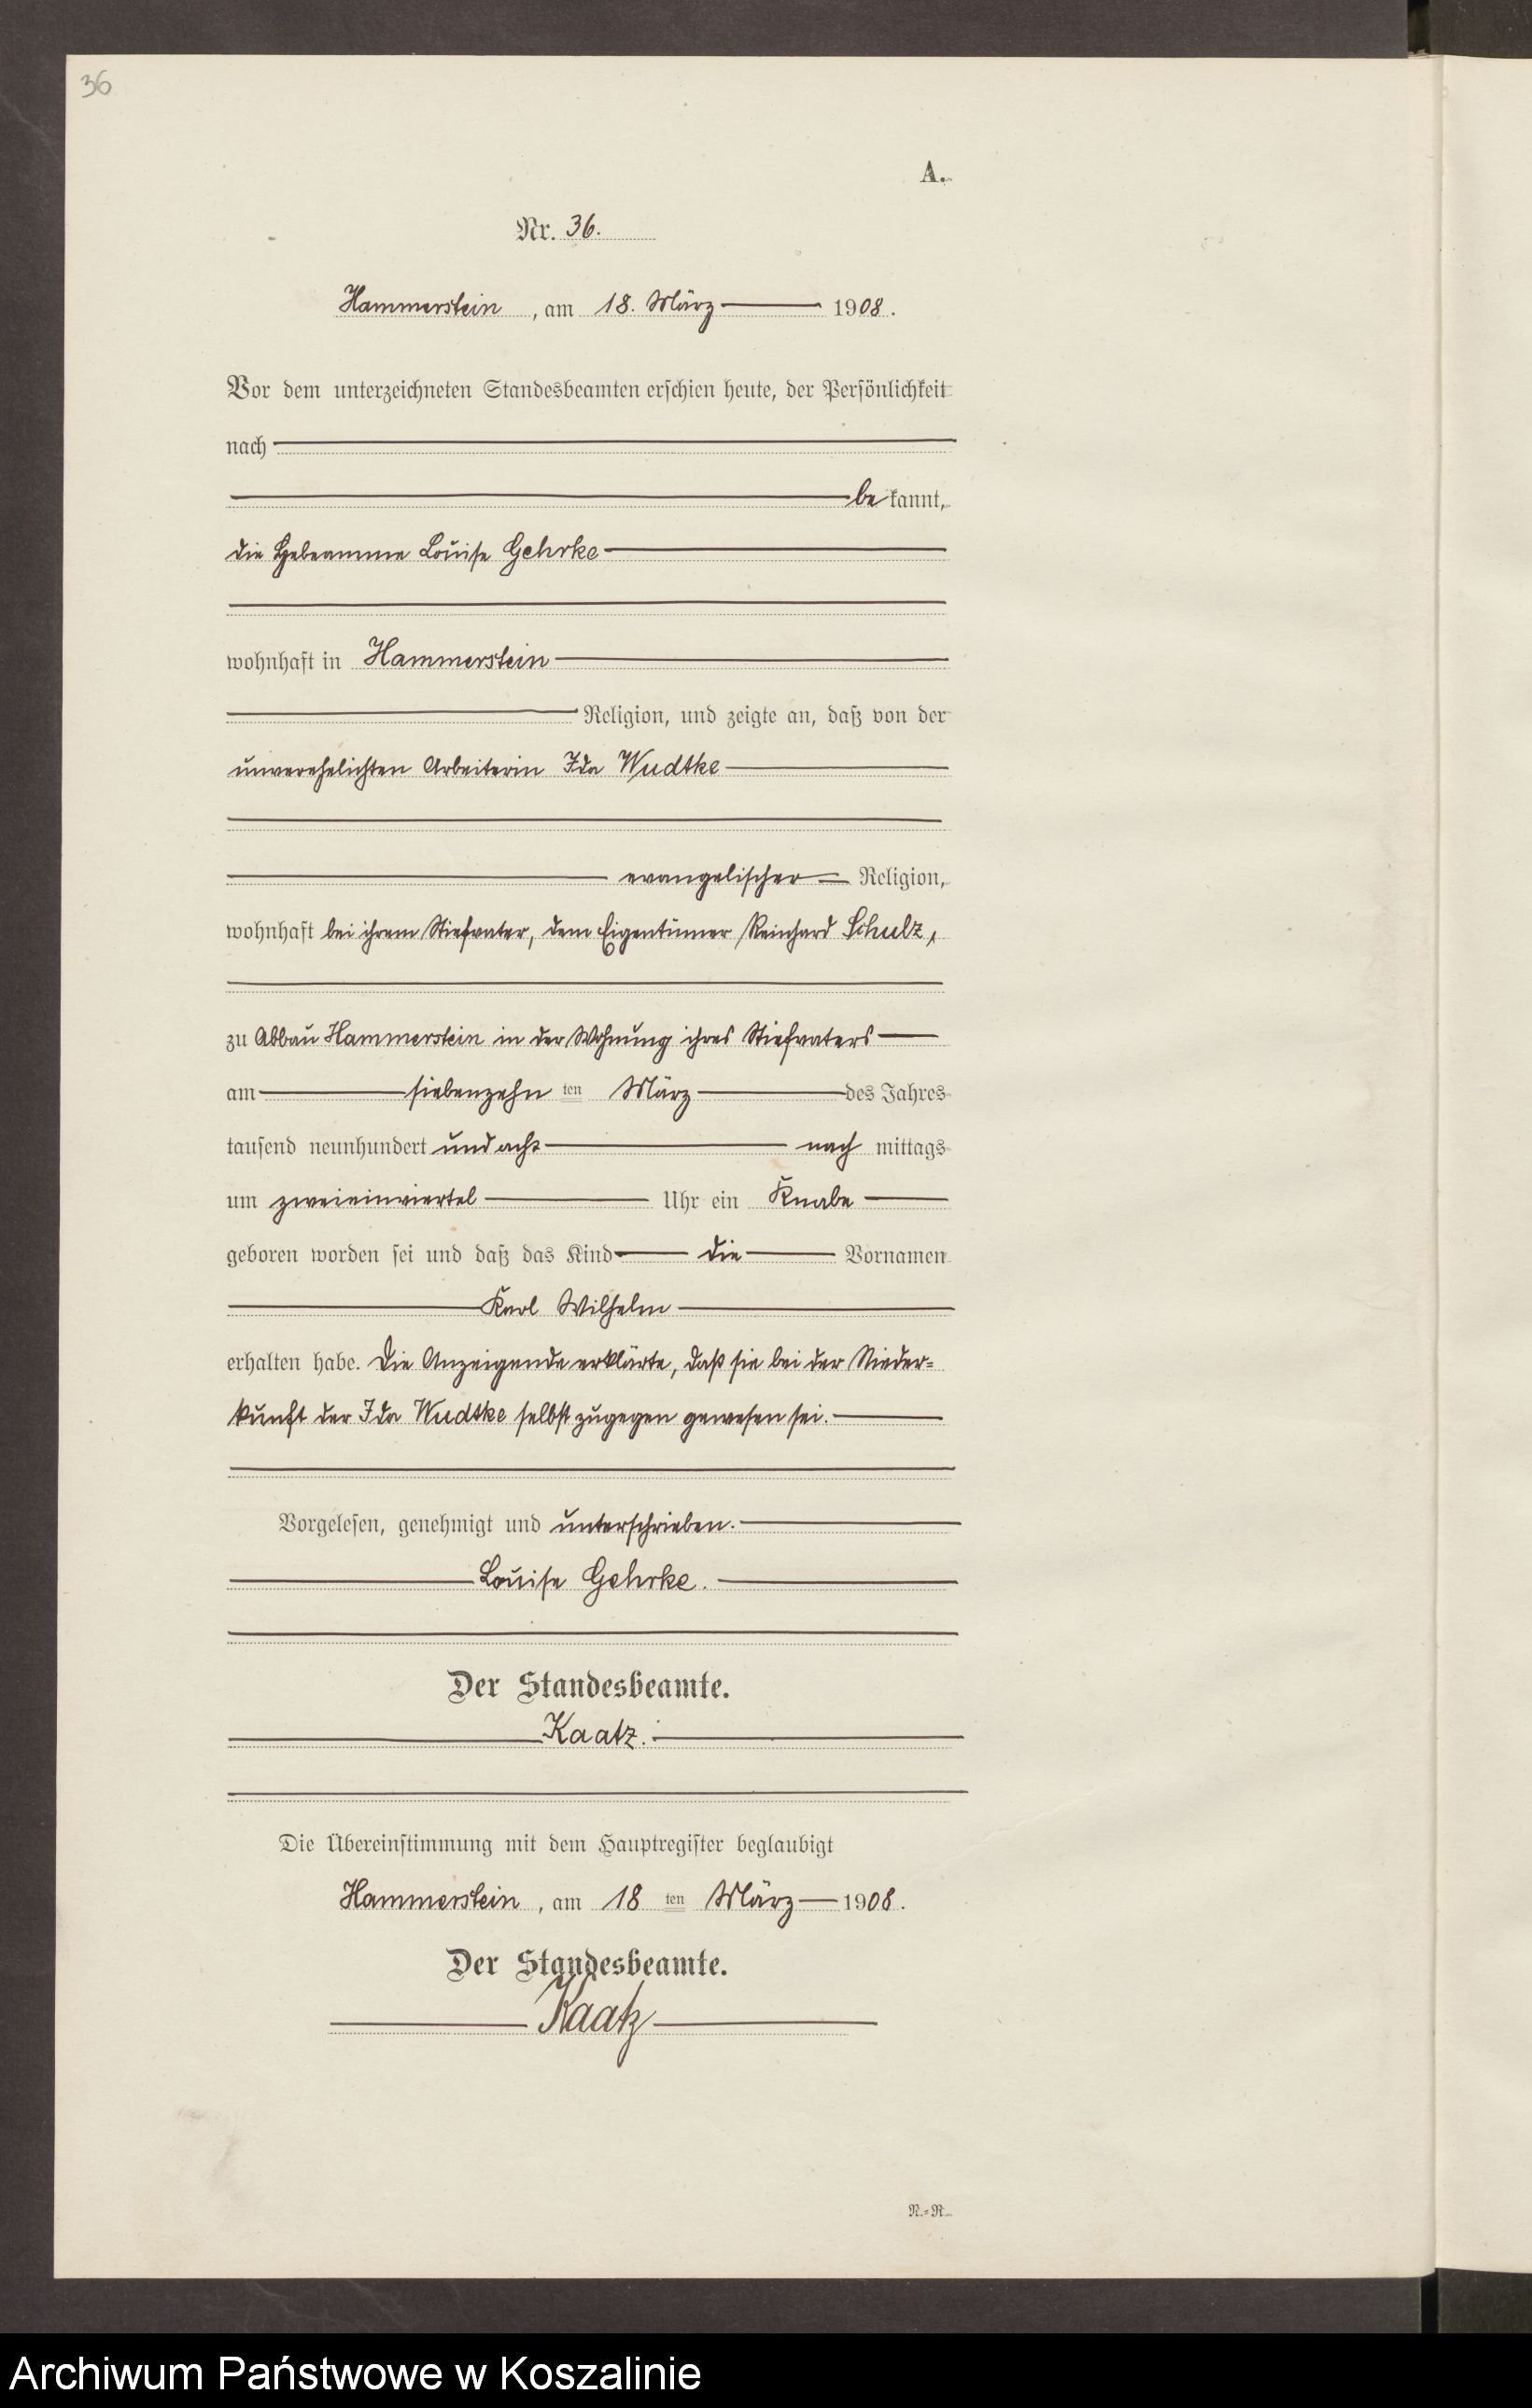 36
A.
Nr. 36.
Hammerstein, am 18. März 1908.
Vor dem unterzeichneten Standesbeamten erschien heute, der Persönlichkeit
nach
bekannt,
die Hebeamme Louise Gehrke
wohnhaft in Hammerstein
Religion, und zeigte an, daß von der
unverehelichten Arbeiterin Ida Wudtke
evangelischer Religion,
wohnhaft bei ihrem Stiefvater, dem Eigentümer Reinhard Schulz,
zu Abbau Hammerstein in der Wohnung ihres Stiefvaters
am siebenzehn ten März des Jahres
tausend neunhundert und acht nach mittags
um zweieinviertel Uhr ein Knabe
geboren worden sei und daß das Kind die Vornamen
Karl Wilhelm
erhalten habe. Die Anzeigende erklärte, daß sie bei der Nieder=
kunft der Ida Wudtke selbst zugegen gewesen sei.
Vorgelesen, genehmigt und unterschrieben.
Louise Gehrke.
Der Standesbeamte.
Kaatz.
Die Übereinstimmung mit dem Hauptregister beglaubigt
Hammerstein, am 18 ten März 1908.
Der Standesbeamte.
Kaatz
N.=R.
Archiwum Państwowe w Koszalinie